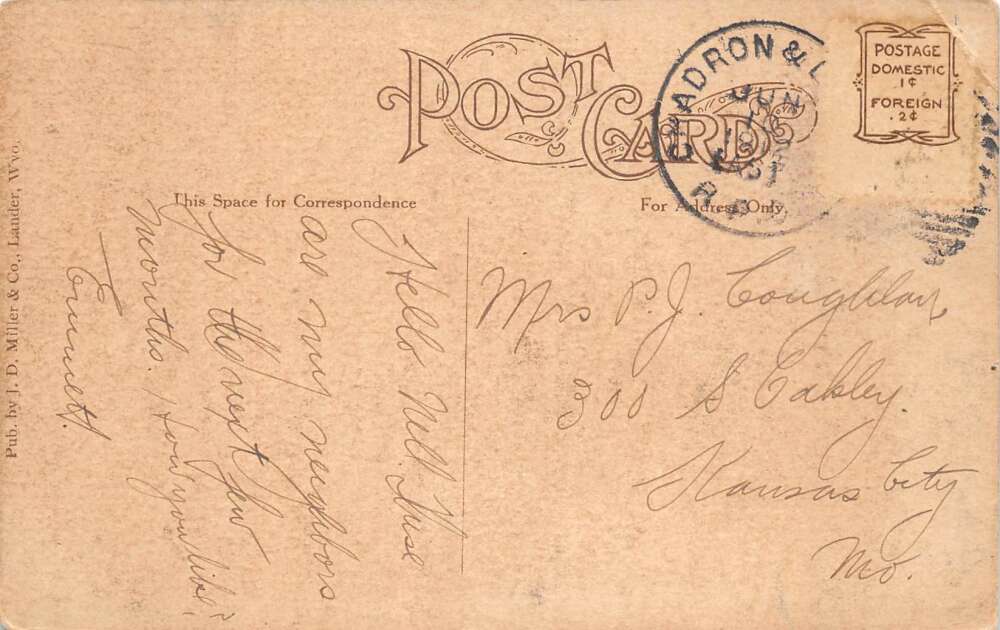 POST CARD
CHADRON &
JUN
R.P.
POSTAGE
DOMESTIC
1¢
FOREIGN
2¢
This Space for Correspondence
For Address Only.
Pub. by J. D. Miller & Co., Lander, Wyo.
Hello Nell. These
are my neighbors
for the next few
months. How you like?
Emmett.
Mrs P. J. Coughlan,
300 S Oakley
Kansas City
Mo.